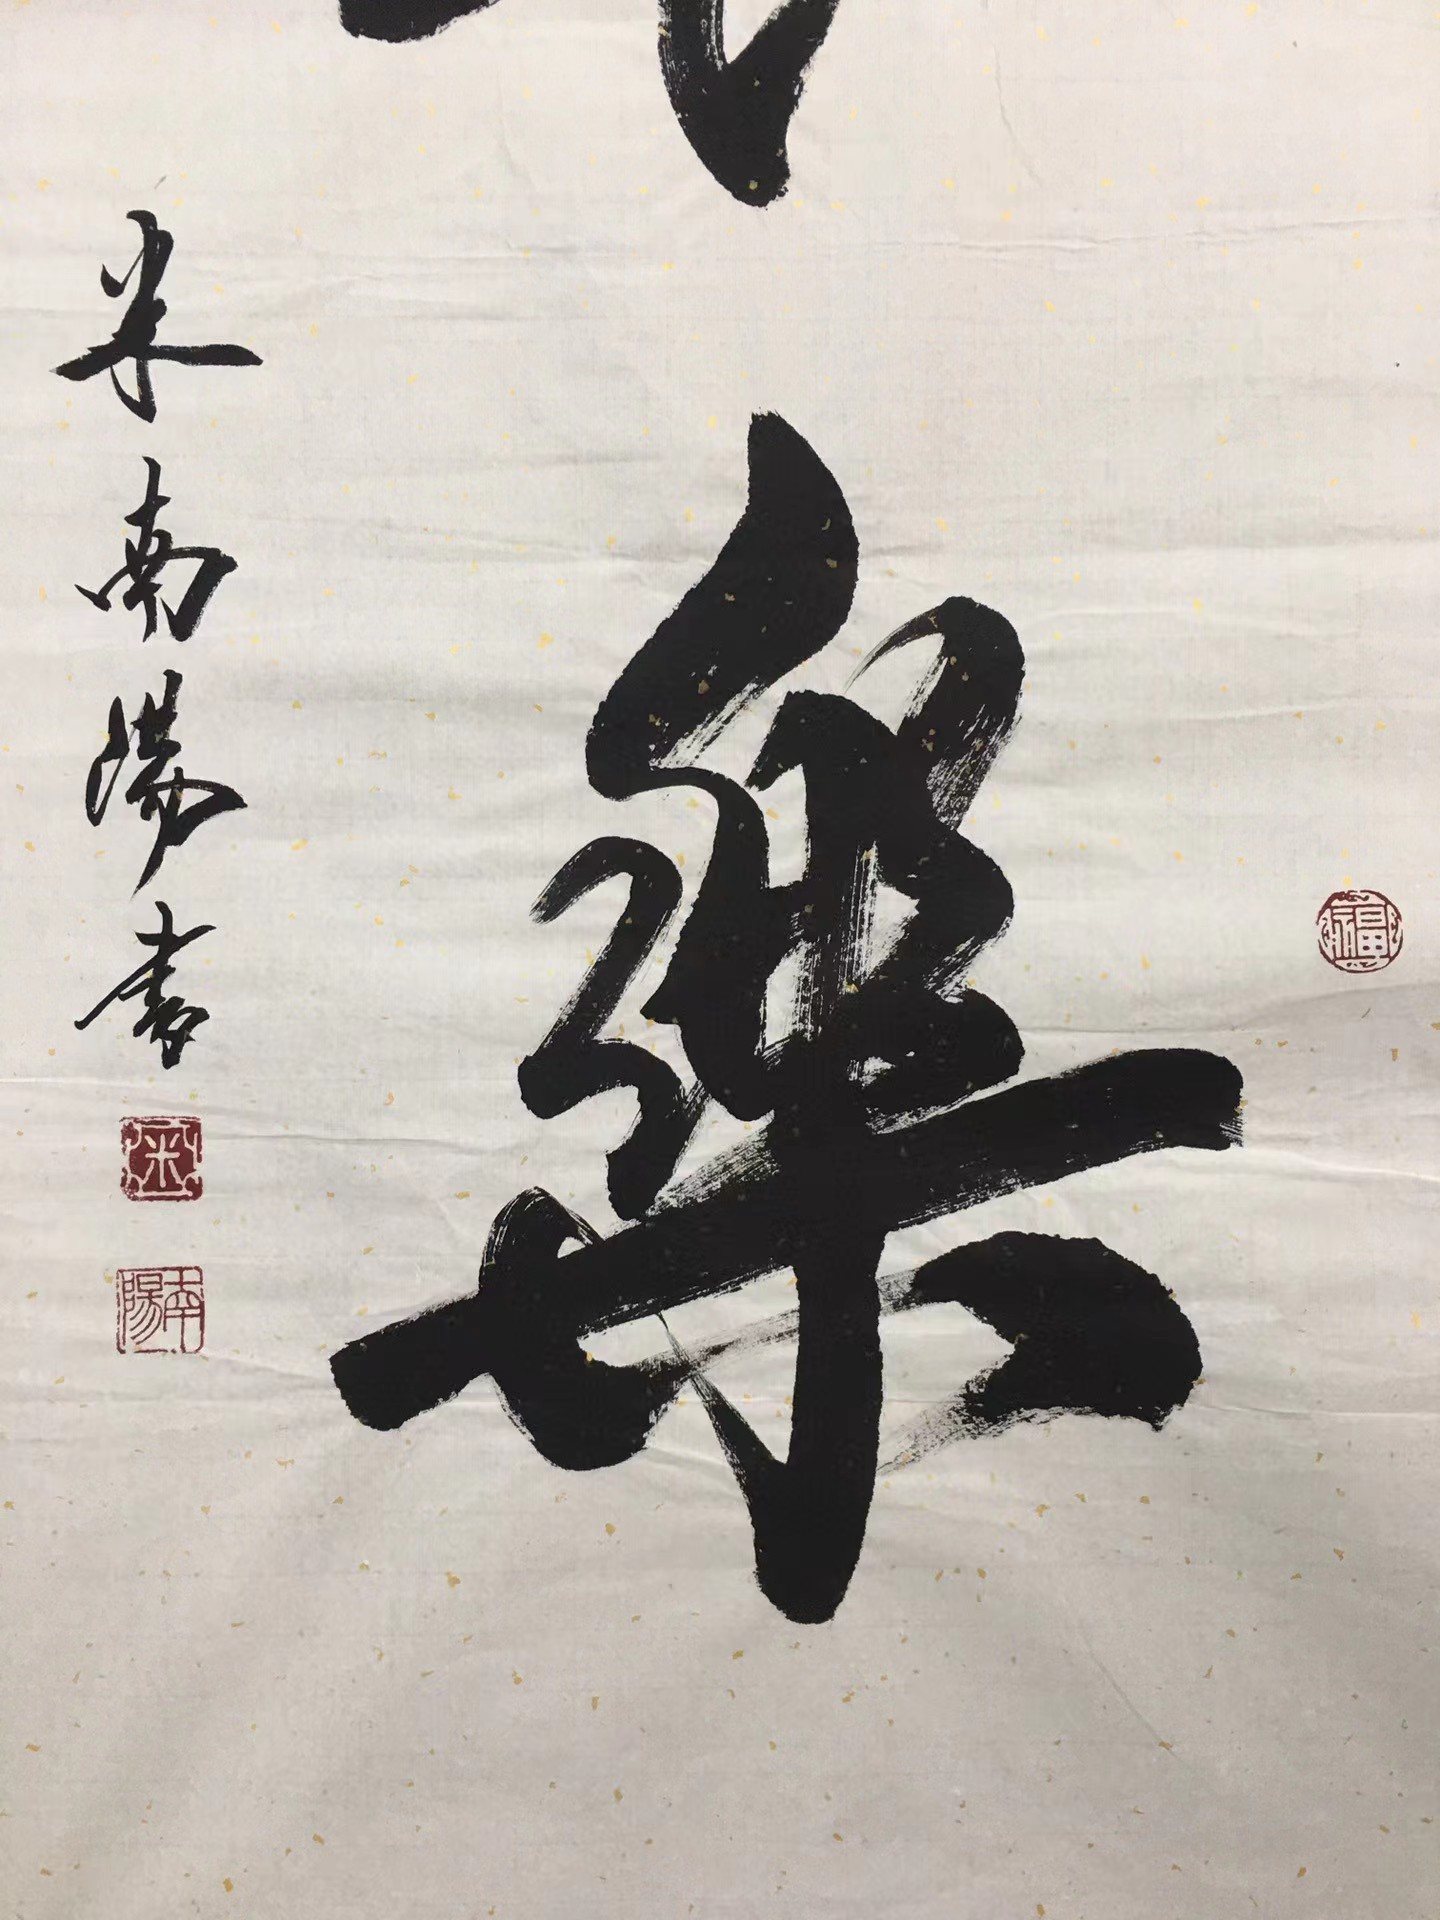 樂
米南陽書
米
南陽
福